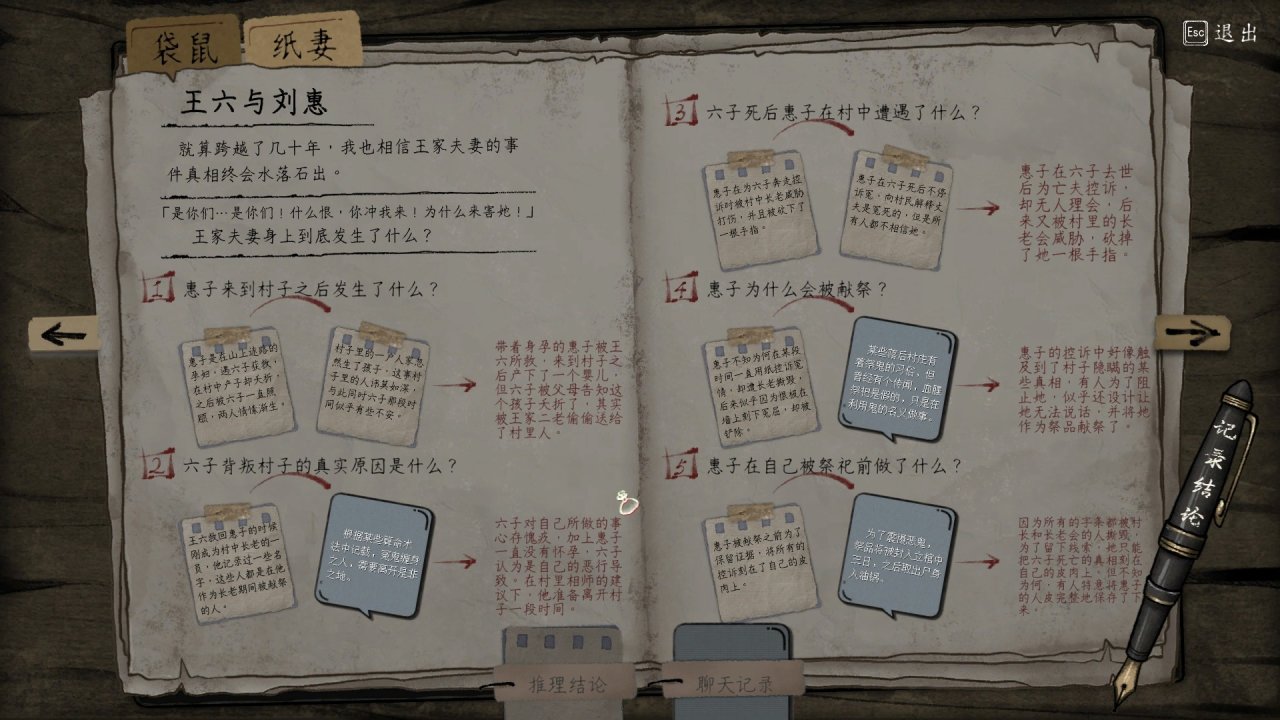 袋鼠
纸妻
Esc 退出
王六与刘惠
就算跨越了几十年，我也相信王家夫妻的事
件真相终会水落石出。
「是你们…是你们！什么恨，你冲我来！为什么来害她！」
王家夫妻身上到底发生了什么？
1 惠子来到村子之后发生了什么？
惠子是在山上迷路的
孕妇，遇六子获救，
在村中产子却夭折，
之后被六子一直照
顾，两人情愫渐生。
村子里的一户人家忽
然生了孩子，这事村
子里的人讳莫如深，
与此同时六子那段时
间似乎有些不安。
带着身孕的惠子被王
六所救，来到村子之
后产下了一个婴儿，
但六子被父母告知这
个孩子夭折了，其实
被王家二老偷偷送给
了村里人。
2 六子背叛村子的真实原因是什么？
王六救回惠子的时候
刚成为村中长老的一
员，他记录过一些名
字，这些人都是在他
作为长老期间被献祭
的人。
根据某些算命术
法中记载，冤鬼缠身
之人，需要离开是非
之地。
六子对自己所做的事
心存愧疚，加上惠子
一直没有怀孕，六子
认为是自己的恶行导
致。在村里相师的建
议下，他准备离开村
子一段时间。
3 六子死后惠子在村中遭遇了什么？
惠子在为六子奔走控
诉时被村中长老威胁
打伤，并且被砍下了
一根手指。
惠子在六子死后不停
诉冤，向村民解释丈
夫是冤死的，但是所
有人都不相信她。
惠子在六子去世
后为亡夫控诉，
却无人理会，后
来又被村里的长
老会威胁，砍掉
了她一根手指。
4 惠子为什么会被献祭？
惠子不知为何在某段
时间一直用纸控诉冤
情，却遭长老撕毁，
后来似乎因为恨极在
墙上刻下冤屈，却被
铲除。
某些荫后村庄有
着祭鬼的习俗，但
曾经有个传闻，血腥
祭祀是假的，只是在
利用鬼的名义做事。
惠子的控诉中好像触
及到了村子隐瞒的某
些真相，有人为了阻
止她，似乎还设计让
她无法说话，并将她
作为祭品献祭了。
5 惠子在自己被祭祀前做了什么？
惠子被献祭之前为了
保留证据，将所有的
控诉刻在了自己的皮
肉上。
为了震慑恶鬼，
祭品将被封入立棺中
三日，之后取出尸身
入油锅。
因为所有的字条都被村
长和长老会的人撕毁，
为了留下线索，她只能
把六子死亡的真相刻在
自己的皮肉上。但不知
为何，有人特意将惠子
的人皮完整地保存了下
来。
记录结论
推理结论
聊天记录